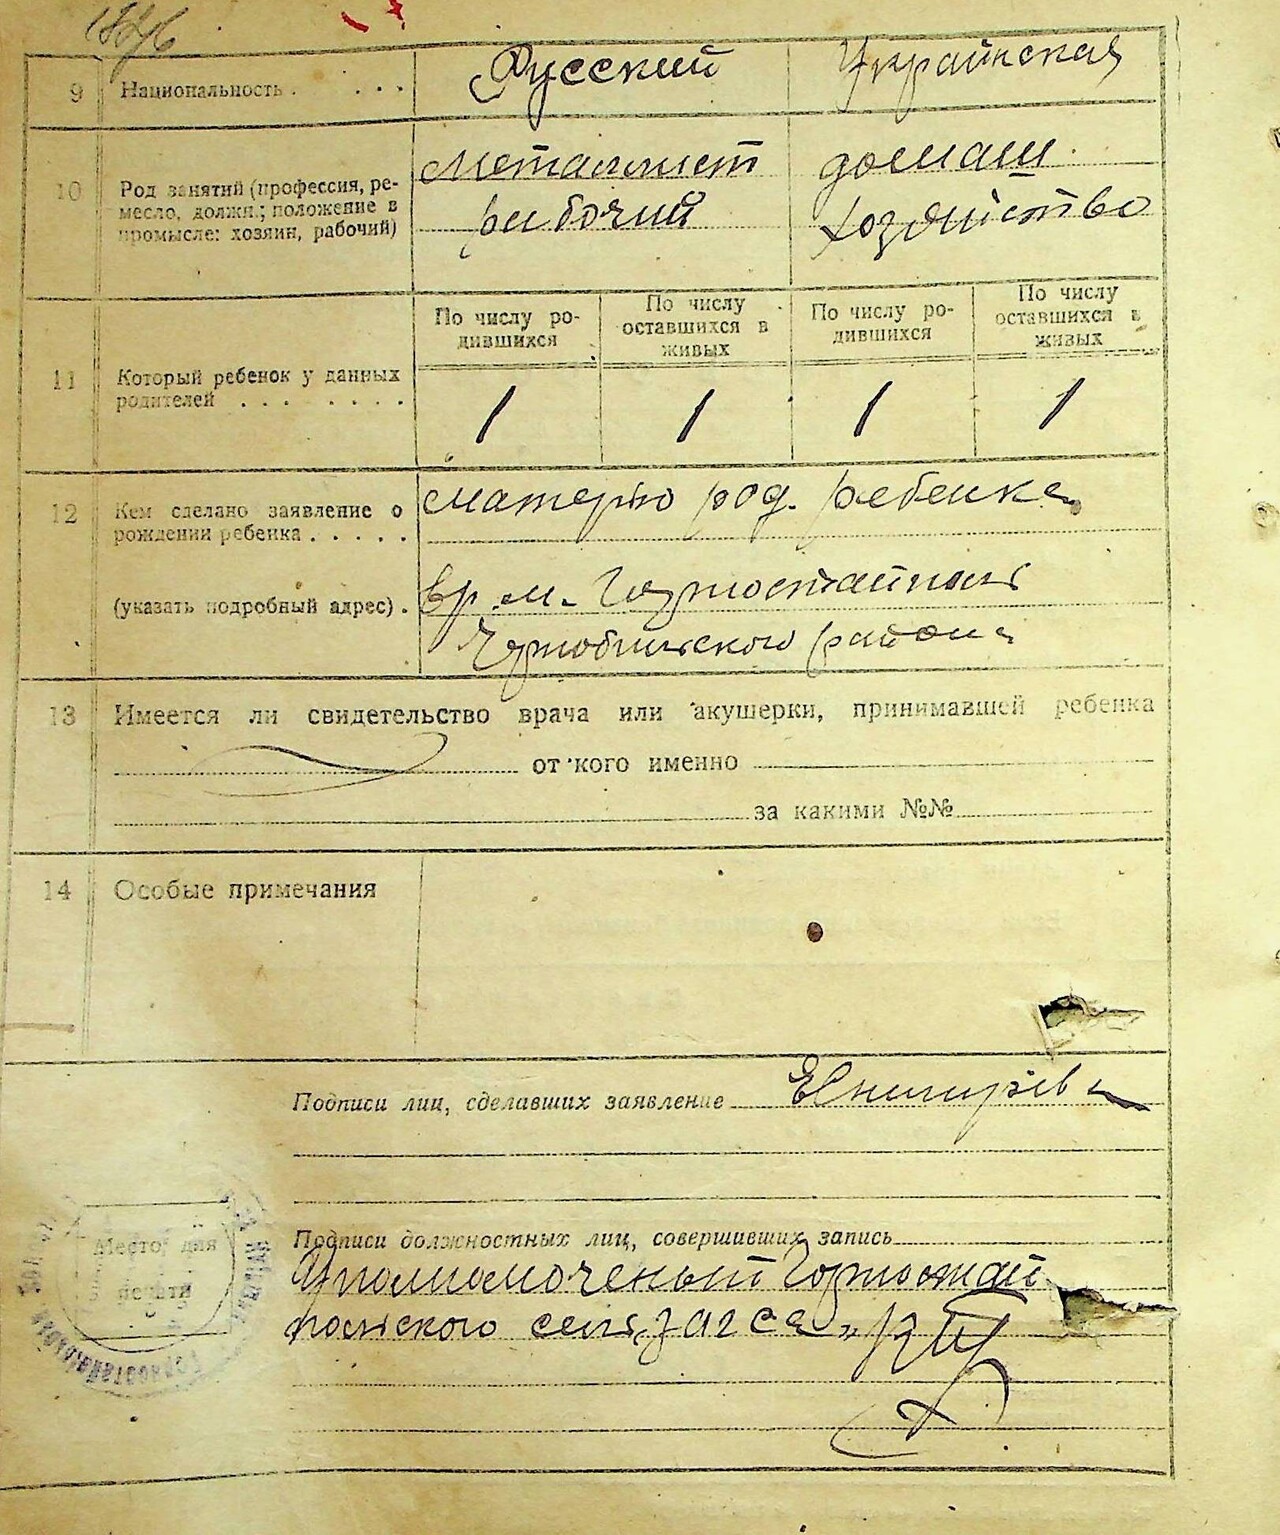 9 Национальность . . . . Русский Украинская
10 Род занятий (профессия, ре-
месло, должн.; положение в
промысле: хозяин, рабочий)
металлист
рабочий
домаш
хозяйство
По числу ро-
дившихся
По числу
оставшихся в
живых
По числу ро-
дившихся
По числу
оставшихся в
живых
11 Который ребенок у данных
родителей . . . . . . .
1 1 1 1
12 Кем сделано заявление о
рождении ребенка . . . . .
матерью род. ребенка
(указать подробный адрес) .
вр. м. Горностайполь
Чернобильского района
13 Имеется ли свидетельство врача или акушерки, принимавшей ребенка
от кого именно
за какими №№
14 Особые примечания
Подписи лиц, сделавших заявление
Место для
печати
Подписи должностных лиц, совершивших запись
Уполномоченый Горностай
польского сель загса